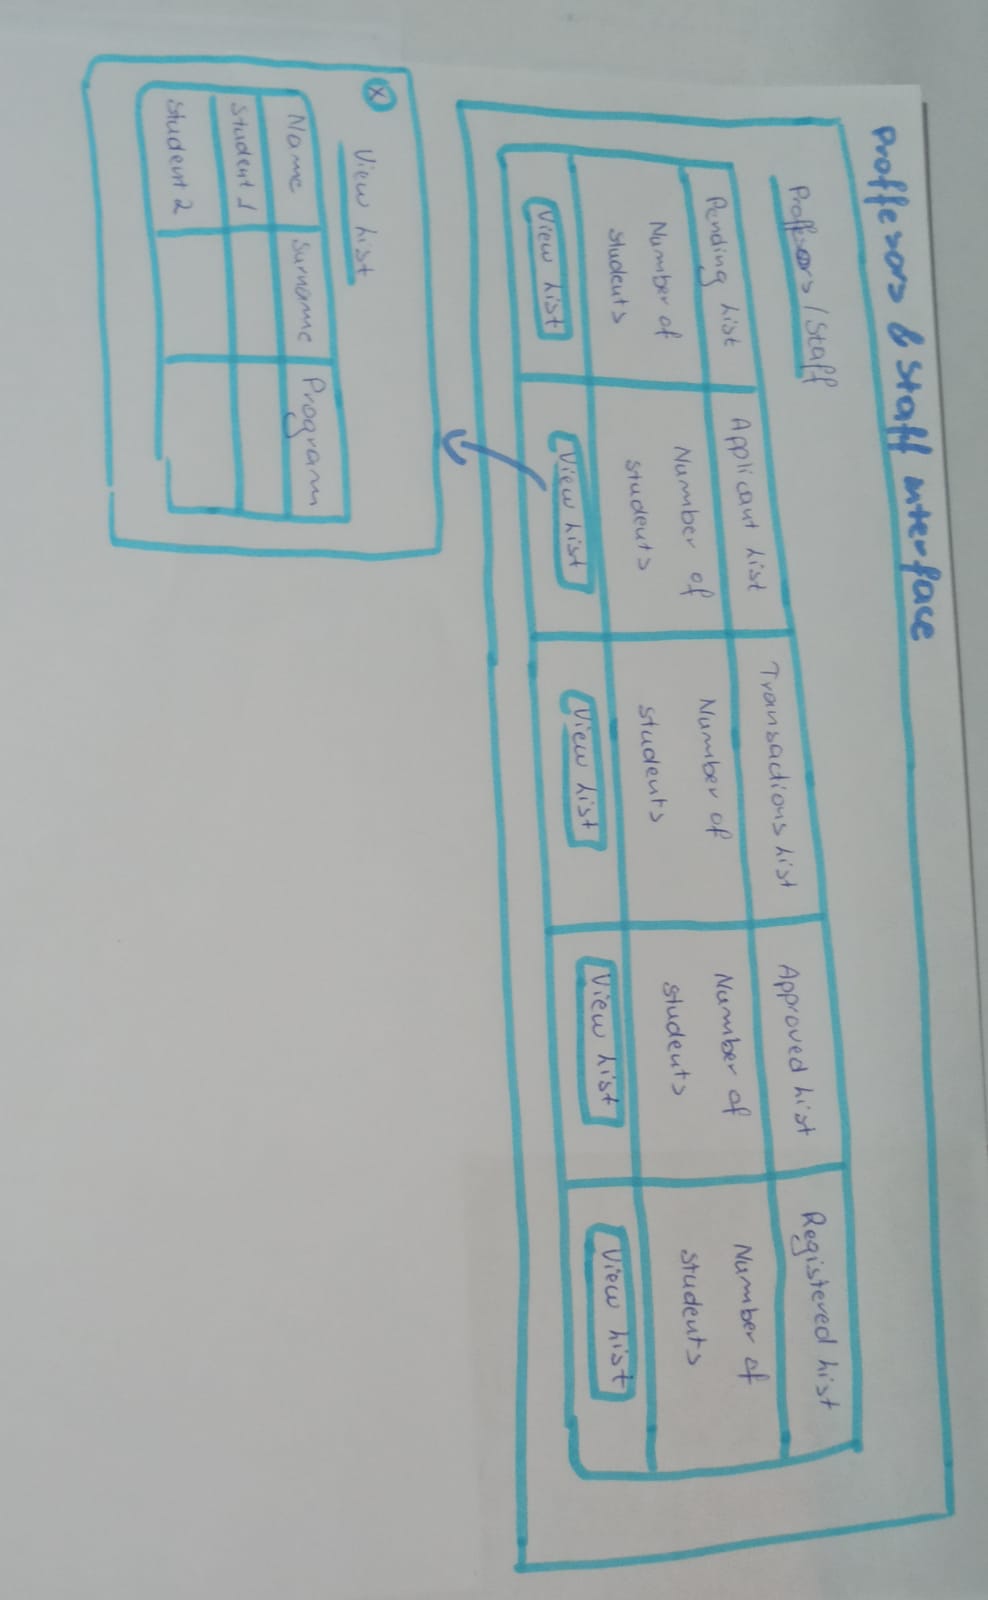 Proffesors & Staff interface
Proffesors / Staff
Pending List
Applicant List
Transactions List
Approved List
Registered List
Number of
students
Number of
students
Number of
students
Number of
students
Number of
students
View List
View List
View List
View List
View List
X
View List
Name
Surname
Program
Student 1
Student 2